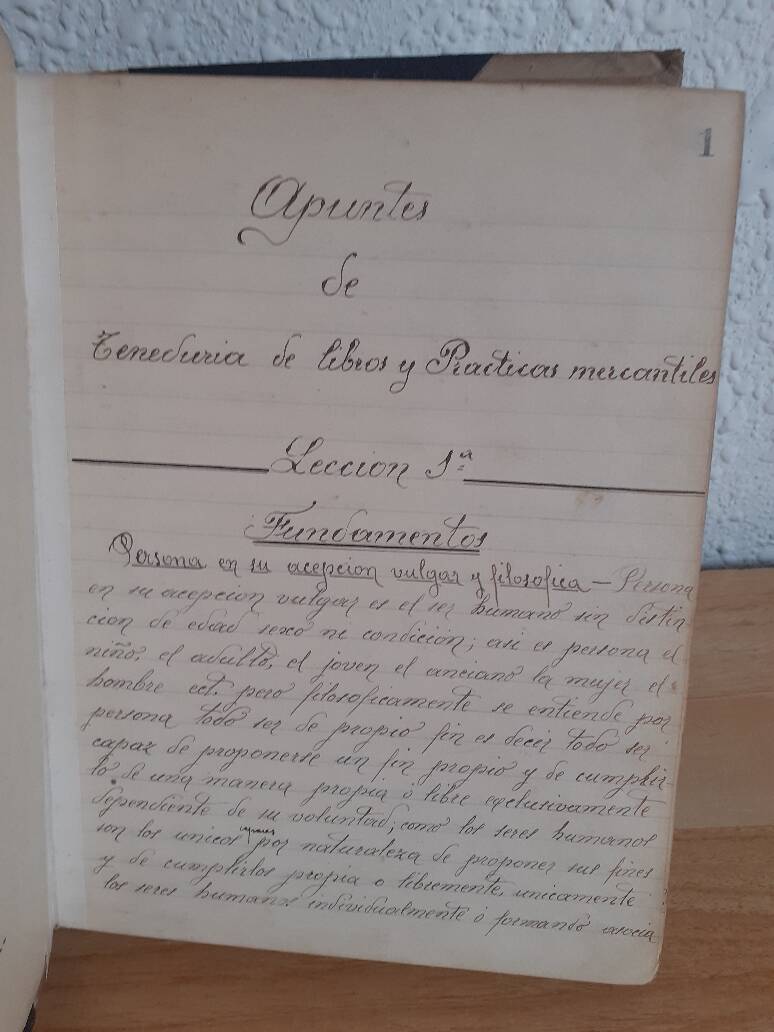 1
Apuntes
de
Teneduria de libros y Practicas mercantiles
Leccion 1ª
Fundamentos
Persona en su acepcion vulgar y filosofica — Persona
en su acepcion vulgar es el ser humano sin distin
cion de edad sexo ni condición; asi es persona el
niño, el adulto, el joven el anciano la mujer el
hombre ect, pero filosoficamente se entiende por
persona todo ser de propio fin es decir todo ser
capaz de proponerse un fin propio y de cumplir
lo de una manera propia ó libre exclusivamente
dependiente de su voluntad; como los seres humanos
son los unicos capaces por naturaleza de proponer sus fines
y de cumplirlos propia o libremente, unicamente
los seres humanos individualmente ó formando asocia